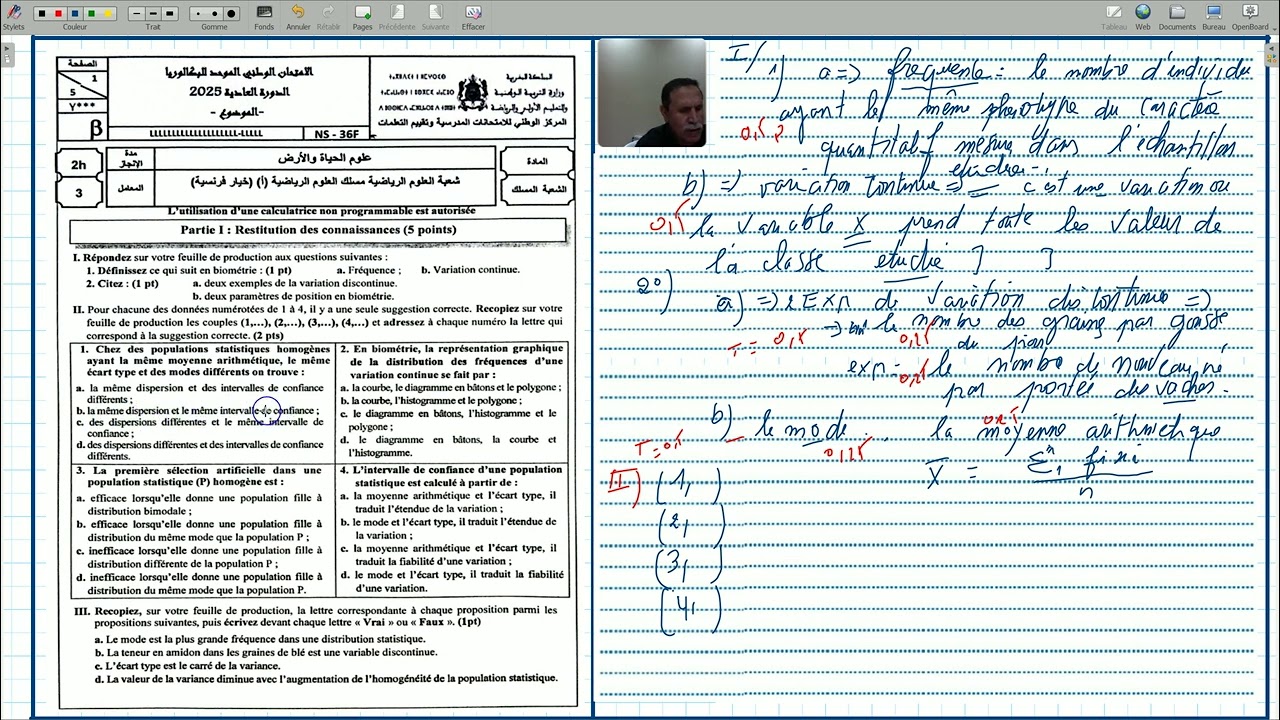 Stylets
Couleur
Trait
Gomme
Fonds
Annuler
Rétablir
Pages
Précédente
Suivante
Effacer
Tableau
Web
Documents
Bureau
OpenBoard
الصفحة
1
5
Y***
β
الامتحان الوطني الموحد للبكالوريا
الدورة العادية 2025
-الموضوع-
NS - 36F
المملكة المغربية
وزارة التربية الوطنية
والتعليم الأولي والرياضة
المركز الوطني للامتحانات المدرسية وتقييم التعلمات
2h
مدة الإنجاز
علوم الحياة والأرض
المادة
3
المعامل
شعبة العلوم الرياضية مسلك العلوم الرياضية (أ) (خيار فرنسية)
الشعبة المسلك
L'utilisation d'une calculatrice non programmable est autorisée
Partie I : Restitution des connaissances (5 points)
I. Répondez sur votre feuille de production aux questions suivantes :
1. Définissez ce qui suit en biométrie : (1 pt) a. Fréquence ; b. Variation continue.
2. Citez : (1 pt) a. deux exemples de la variation discontinue.
b. deux paramètres de position en biométrie.
II. Pour chacune des données numérotées de 1 à 4, il y a une seule suggestion correcte. Recopiez sur votre
feuille de production les couples (1,...), (2,...), (3,...), (4,...) et adressez à chaque numéro la lettre qui
correspond à la suggestion correcte. (2 pts)
1. Chez des populations statistiques homogènes
ayant la même moyenne arithmétique, le même
écart type et des modes différents on trouve :
a. la même dispersion et des intervalles de confiance
différents ;
b. la même dispersion et le même intervalle de confiance ;
c. des dispersions différentes et le même intervalle de
confiance ;
d. des dispersions différentes et des intervalles de confiance
différents.
2. En biométrie, la représentation graphique
de la distribution des fréquences d'une
variation continue se fait par :
a. la courbe, le diagramme en bâtons et le polygone ;
b. la courbe, l'histogramme et le polygone ;
c. le diagramme en bâtons, l'histogramme et le
polygone ;
d. le diagramme en bâtons, la courbe et
l'histogramme.
3. La première sélection artificielle dans une
population statistique (P) homogène est :
a. efficace lorsqu'elle donne une population fille à
distribution bimodale ;
b. efficace lorsqu'elle donne une population fille à
distribution du même mode que la population P ;
c. inefficace lorsqu'elle donne une population fille à
distribution différente de la population P ;
d. inefficace lorsqu'elle donne une population fille à
distribution du même mode que la population P.
4. L'intervalle de confiance d'une population
statistique est calculé à partir de :
a. la moyenne arithmétique et l'écart type, il
traduit l'étendue de la variation ;
b. le mode et l'écart type, il traduit l'étendue de
la variation ;
c. la moyenne arithmétique et l'écart type, il
traduit la fiabilité d'une variation ;
d. le mode et l'écart type, il traduit la fiabilité
d'une variation.
III. Recopiez, sur votre feuille de production, la lettre correspondante à chaque proposition parmi les
propositions suivantes, puis écrivez devant chaque lettre « Vrai » ou « Faux ». (1pt)
a. Le mode est la plus grande fréquence dans une distribution statistique.
b. La teneur en amidon dans les graines de blé est une variable discontinue.
c. L'écart type est le carré de la variance.
d. La valeur de la variance diminue avec l'augmentation de l'homogénéité de la population statistique.
I/
1) a => fréquente = le nombre d'individu
ayant le même phénotype du caractère
quantitatif mesuré dans l'échantillon
b) => variation continue => c'est une variation ou
0,5 la variable X prend toute les valeur de
la classe étudié ] ]
2°)
a) => 2 Exn de variation discontinue =>
le nombre des graines par gousse
T = 0,5 0,25 du pois
exn = 0,25 le nombre de nouveau né
par portée des vaches.
b) le mode , la moyenne arithmétique
T = 0,5 0,25 0,25
X̄ = Σ fixi / n
II) (1, )
(2, )
(3, )
(4, )